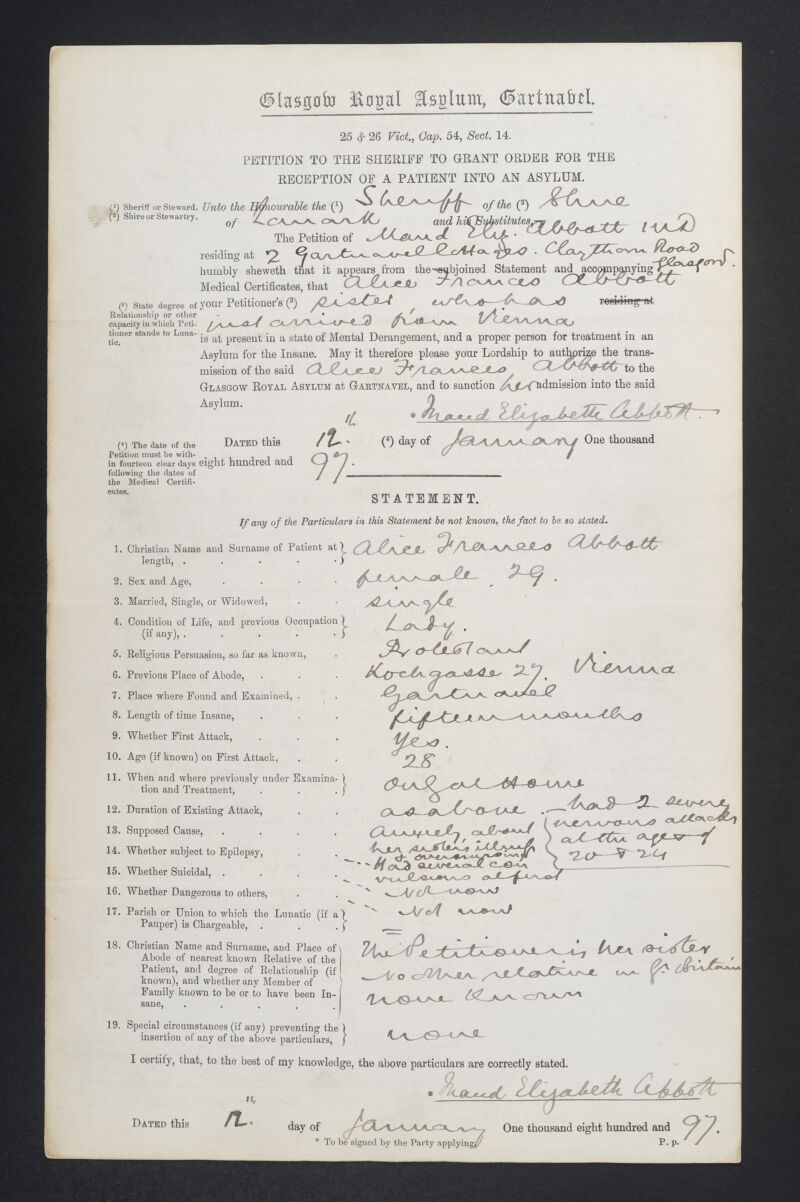 Glasgow Royal Asylum, Gartnavel.
25 & 26 Vict., Cap. 54, Sect. 14.
PETITION TO THE SHERIFF TO GRANT ORDER FOR THE
RECEPTION OF A PATIENT INTO AN ASYLUM.
(¹) Sheriff or Steward. Unto the Honourable the (¹) Sheriff of the (²) Shire
(²) Shire or Stewartry. of Lanark and his Substitutes,
The Petition of Maud Eliz. Abbott M D
residing at 2 Gartnavel Cottages. Claythorn Road Glasgow.
humbly sheweth that it appears from the subjoined Statement and accompanying
Medical Certificates, that Alice Frances Abbott
(³) State degree of Relationship or other capacity in which Petitioner stands to Lunatic.
your Petitioner's (³) sister, who has residing at
just arrived from Vienna
is at present in a state of Mental Derangement, and a proper person for treatment in an
Asylum for the Insane. May it therefore please your Lordship to authorize the trans-
mission of the said Alice Frances Abbott to the
GLASGOW ROYAL ASYLUM AT GARTNAVEL, and to sanction her admission into the said
Asylum.
* Maud Elizabeth Abbott.
(⁴) The date of the Petition must be within fourteen clear days following the dates of the Medical Certificates.
DATED this 12th. (⁴) day of January One thousand
eight hundred and 97.
STATEMENT.
If any of the Particulars in this Statement be not known, the fact to be so stated.
1. Christian Name and Surname of Patient at length, . Alice Frances Abbott
2. Sex and Age, female. 29.
3. Married, Single, or Widowed, single
4. Condition of Life, and previous Occupation (if any), . Lady.
5. Religious Persuasion, so far as known, . Protestant
6. Previous Place of Abode, . Kochgasse 27. Vienna
7. Place where Found and Examined, . Gartnavel
8. Length of time Insane, fifteen months
9. Whether First Attack, Yes.
10. Age (if known) on First Attack, 28
11. When and where previously under Examination and Treatment, Only at Home
12. Duration of Existing Attack, as above. - had 2 severe
nervous attacks
at the ages of
20 & 24
13. Supposed Cause, Anxiety about
her sister's illness
& overnursing
14. Whether subject to Epilepsy, Had several con
vulsions at first
15. Whether Suicidal, . Not now
16. Whether Dangerous to others, Not now
17. Parish or Union to which the Lunatic (if a Pauper) is Chargeable, .
18. Christian Name and Surname, and Place of Abode of nearest known Relative of the Patient, and degree of Relationship (if known), and whether any Member of Family known to be or to have been Insane, .
The Petitioner is her sister
No other relative in Gt. Britain
none Known
19. Special circumstances (if any) preventing the insertion of any of the above particulars, none
I certify, that, to the best of my knowledge, the above particulars are correctly stated.
* Maud Elizabeth Abbott
DATED this 12th. day of January One thousand eight hundred and 97.
* To be signed by the Party applying. P. p.